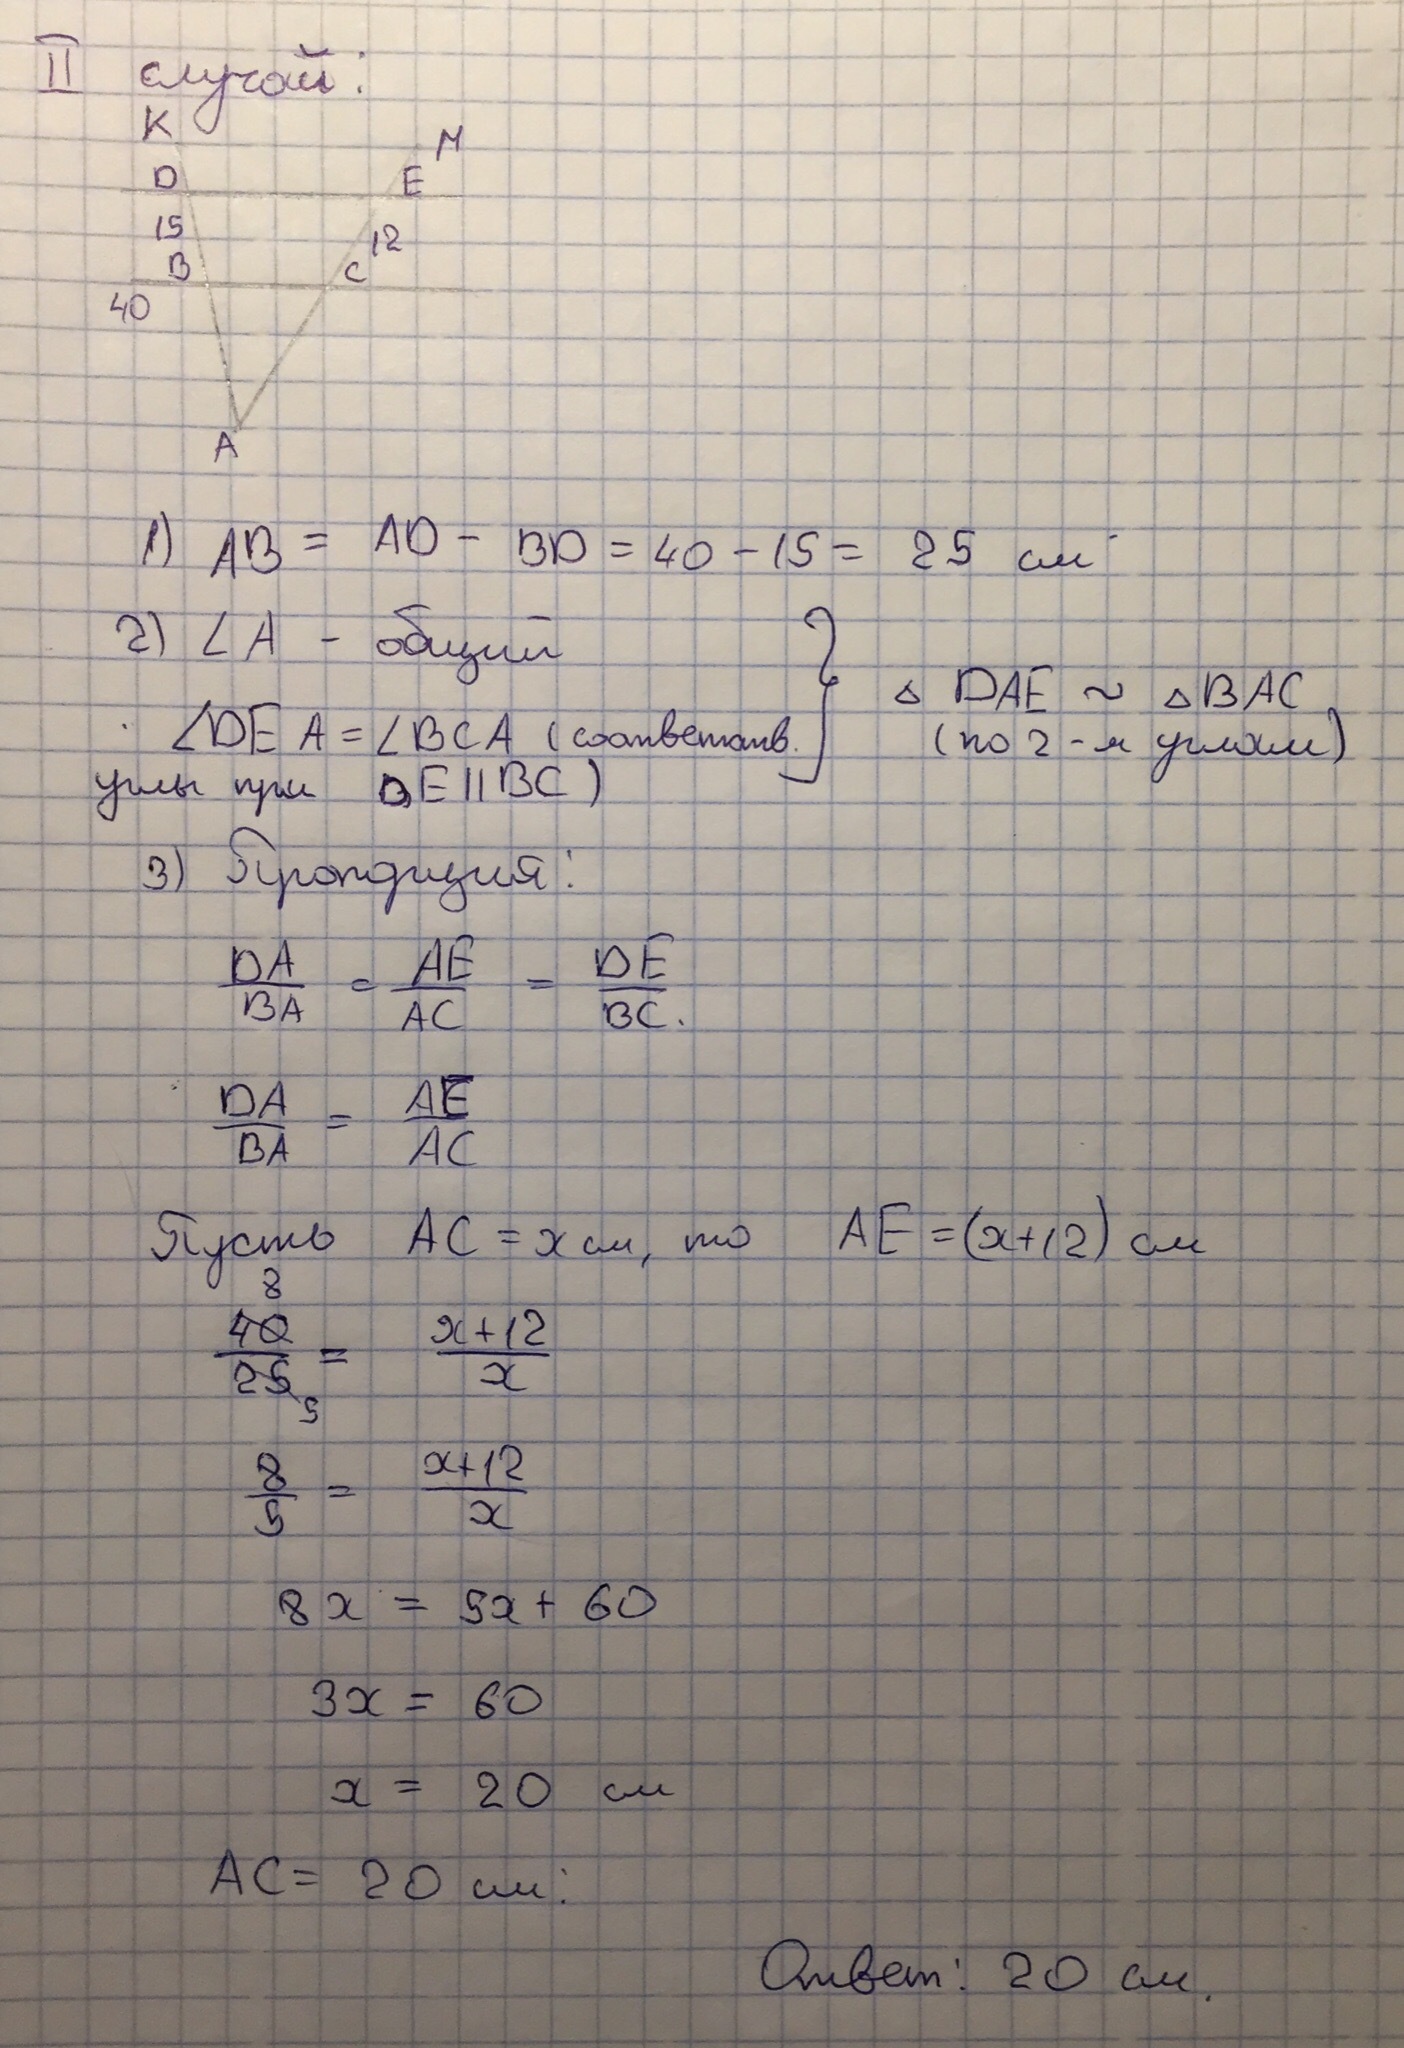 II случай:
K
M
D
E
15
12
B
C
40
A
1) AB = AD - BD = 40 - 15 = 25 см
2) ∠A - общий
∠DEA = ∠BCA (соответств.
углы при DE || BC)
△ DAE ~ △ BAC
(по 2-м углам)
3) Пропорция:
DA/BA = AE/AC = DE/BC.
DA/BA = AE/AC
Пусть AC = x см, то AE = (x+12) см
8
40/25 = x+12/x
5
8/5 = x+12/x
8x = 5x + 60
3x = 60
x = 20 см
AC = 20 см.
Ответ: 20 см.